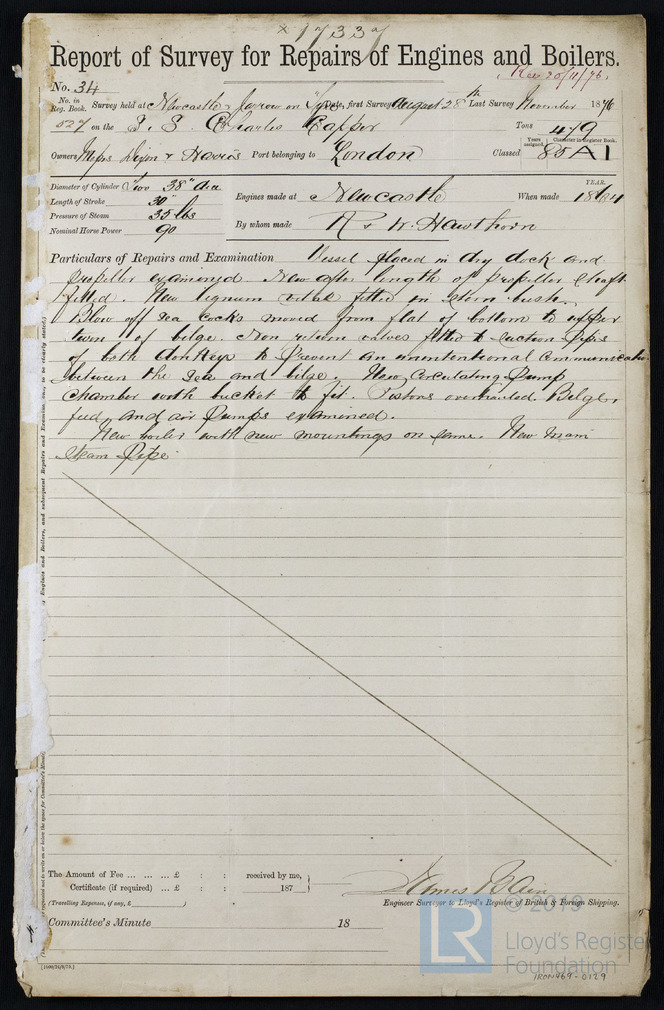 × 17337
Report of Survey for Repairs of Engines and Boilers.
Rec 20/11/76.
No. 34
No. in Reg. Book. Survey held at Newcastle & Jarrow on Tyne Date, first Survey August 28th Last Survey November 1876
527 on the S. S. Charles Capper Tons 479
Years assigned. Character in Register Book.
Owners Messrs Dixon & Harris Port belonging to London Classed 85 A1
Diameter of Cylinder Two 38" dia
Length of Stroke 30"
Pressure of Steam 35 lbs
Nominal Horse Power 90
Engines made at Newcastle When made YEAR. 1864
By whom made R & W. Hawthorn
Particulars of Repairs and Examination Vessel placed in dry dock and
propeller examined. New after length of propeller shaft
fitted. New lignum vitae fitted in stern bush.
Blow off sea cocks moved from flat of bottom to upper
turn of bilge. Non return valves fitted to suction pipes
of both donkeys to prevent an unintentional communication
between the sea and bilge. New circulating pump
chamber with bucket to fit. Pistons overhauled. Bilge,
feed, and air pumps examined.
New boiler with new mountings on same. New main
steam pipe.
of Engines and Boilers, and subsequent Repairs and Examination
to be clearly stated.)
The Amount of Fee ... ... ... £ : : received by me,
Certificate (if required) ... £ : : 187
(Travelling Expenses, if any, £ )
James Blain
Engineer Surveyor to Lloyd's Register of British & Foreign Shipping.
Committee's Minute 18
© 2019
LR
Lloyd's Register
Foundation
IRON469-0129